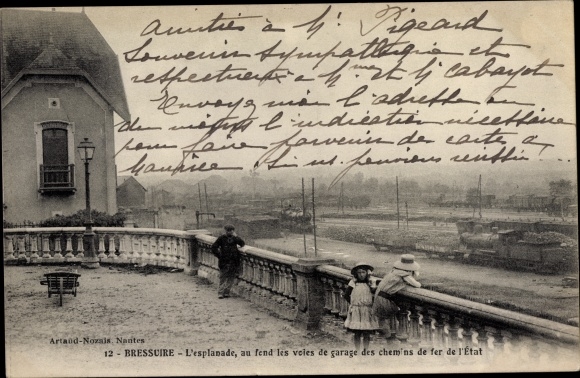 Amitiés à M. Pigeard
Souvenir sympathique et
respectueux à Mme et M. Cabayot
Envoyez-moi l'adresse ou
du moins l'indication nécessaire
pour faire parvenir de cartes à
Maurice.
Artaud-Nozais, Nantes
12 - BRESSUIRE - L'esplanade, au fond les voies de garage des chemins de fer de l'État